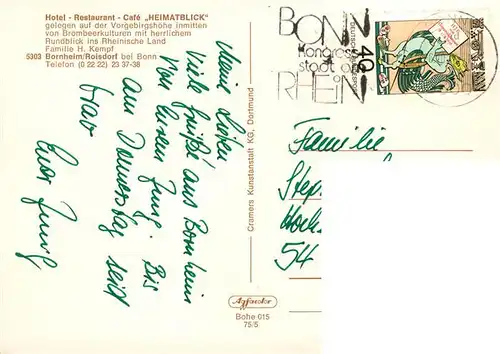 Hotel - Restaurant - Café „HEIMATBLICK"
gelegen auf der Vorgebirgshöhe inmitten
von Brombeerkulturen mit herrlichem
Rundblick ins Rheinische Land
Familie H. Kempf
5303 Bornheim/Roisdorf bei Bonn
Telefon (0 22 22) 23 37-38
Meine Lieben
Viele Grüße aus Bornheim
von Eurem Jung. Bis
am Donnerstag seid
brav
Euer Jung
Cramers Kunstanstalt KG, Dortmund
BONN
Kongress
stadt am
RHEIN
DEUTSCHE BUNDESPOST
40
Familie
Step
Hoch
54
Agfacolor
Bohe 015
75/5